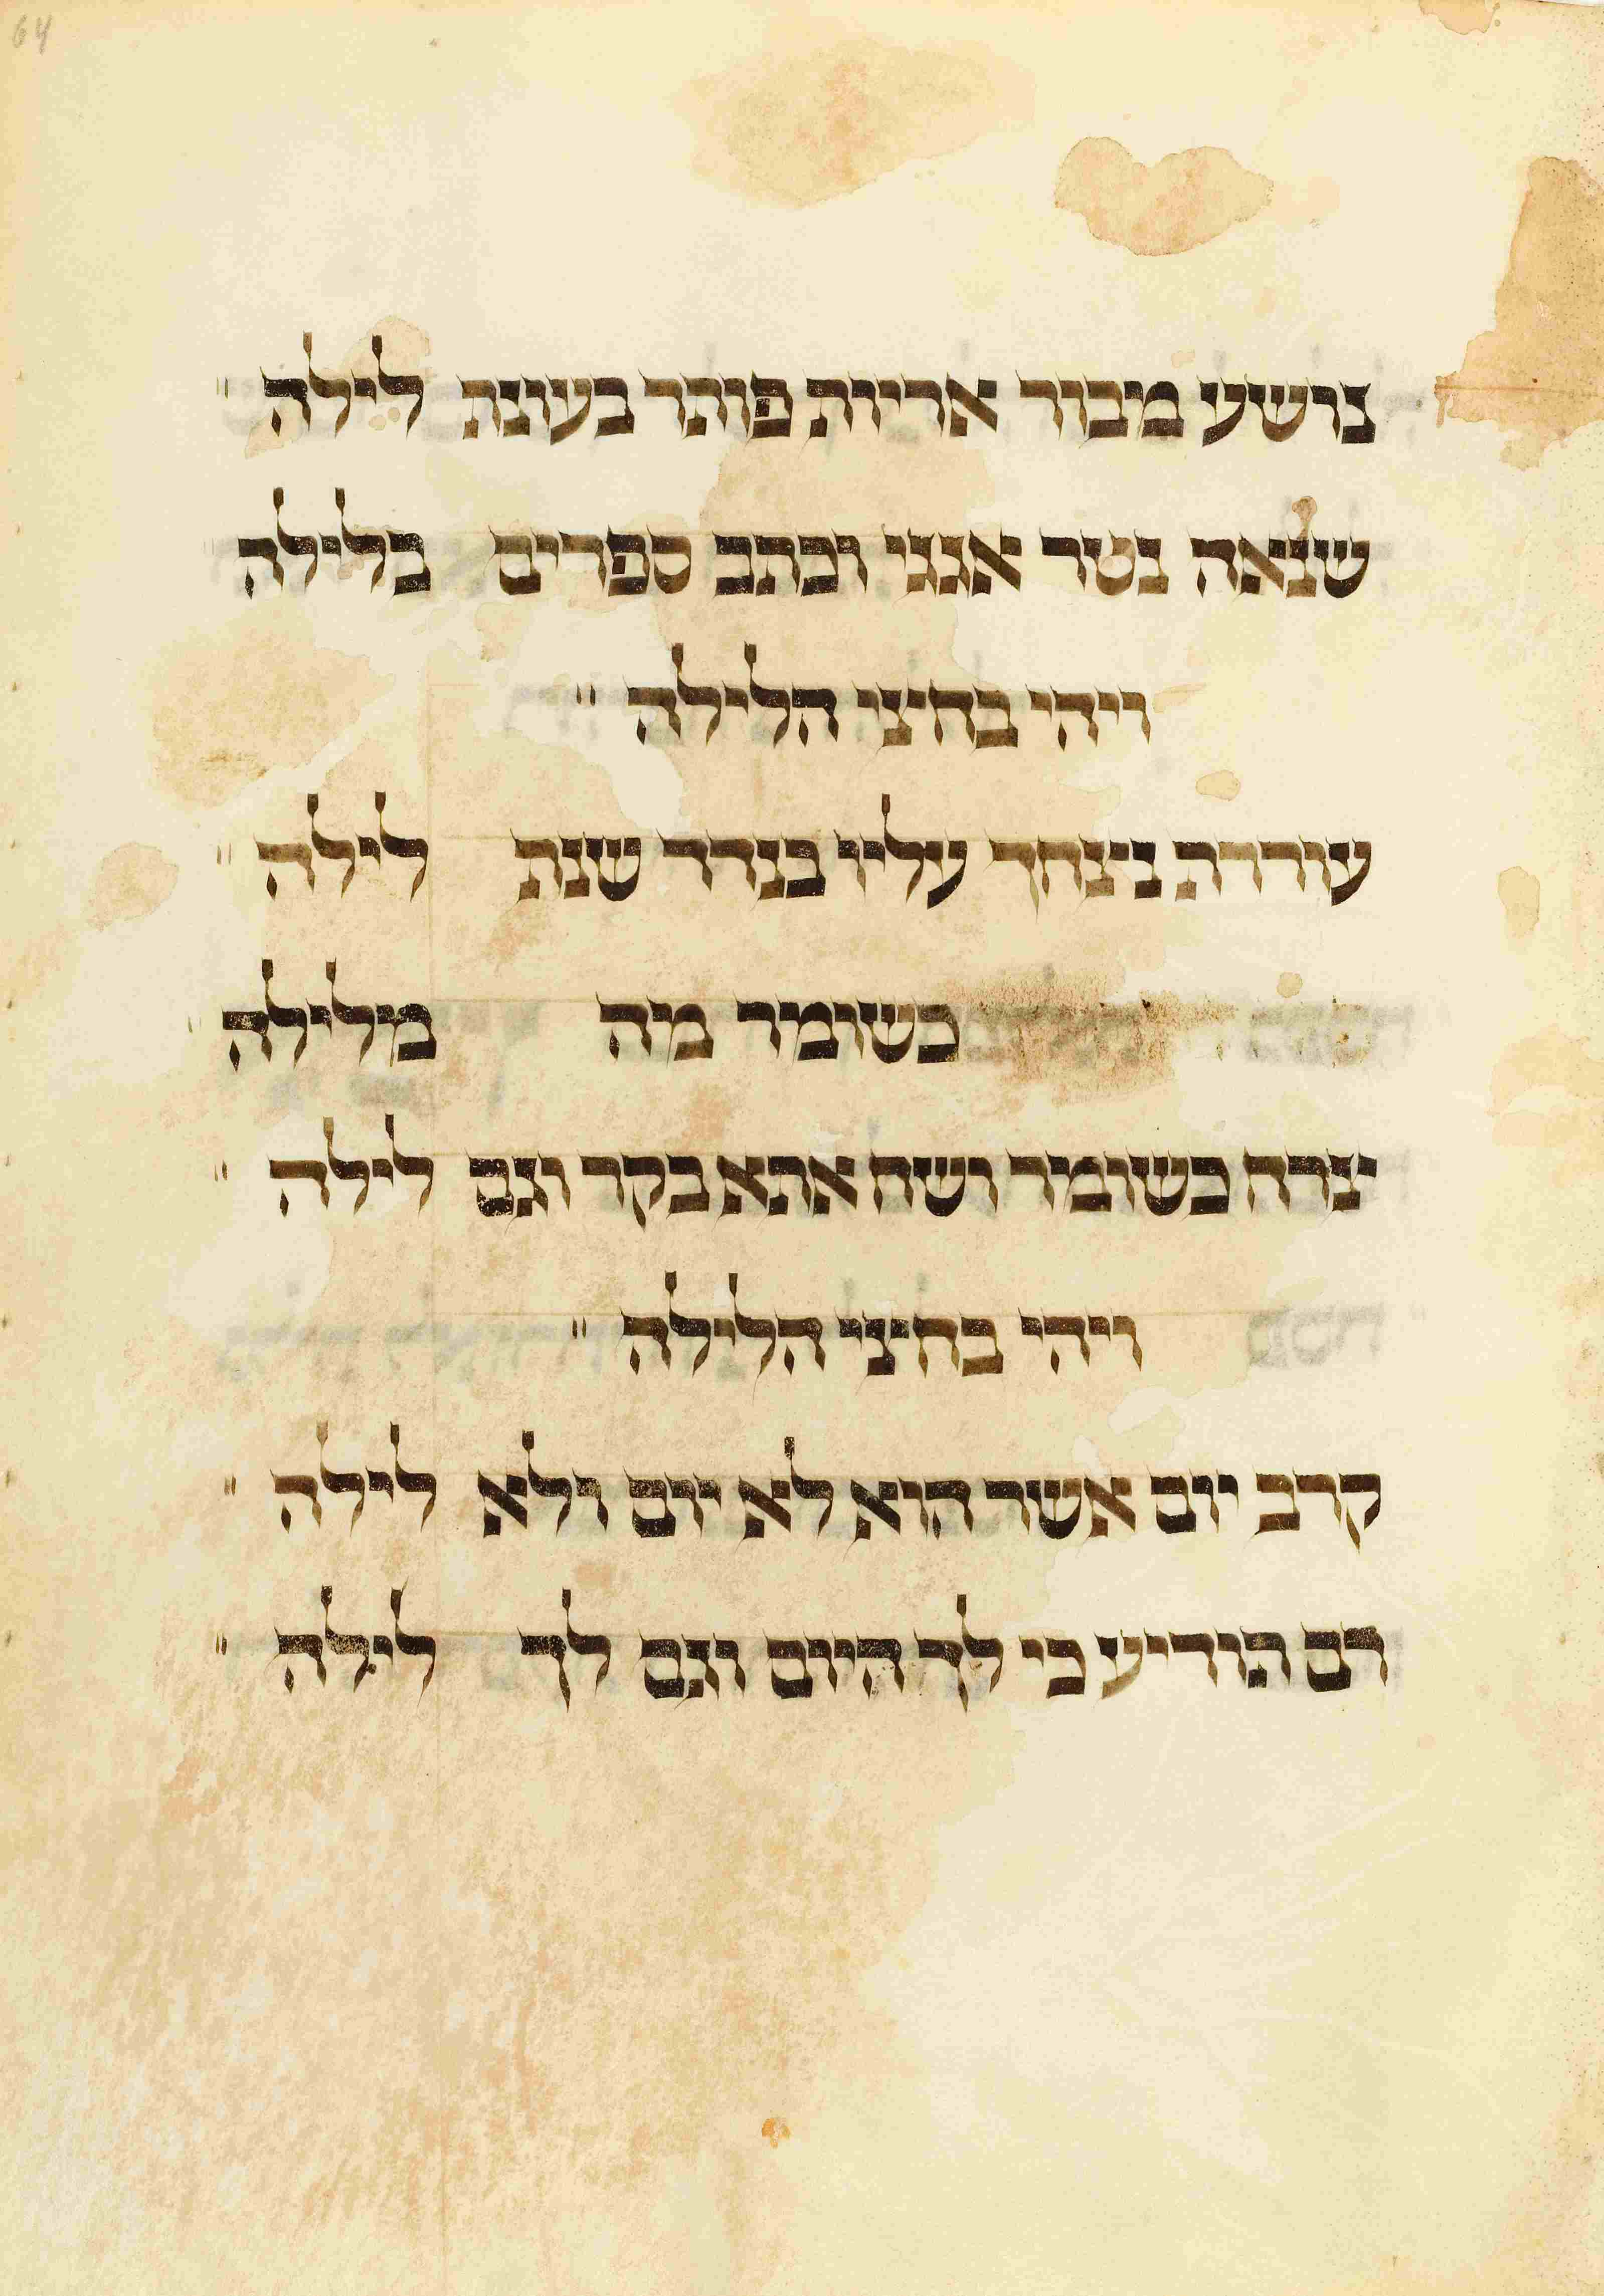 64
נושע מבור אריות פותר בעותת לילה
שנאה נטר אגגי וכתב ספרים בלילה
ויהי בחצי הלילה
עוררת נצחך עליו בנדד שנת לילה
כשומר מה מלילה
צרח כשומר ושח אתא בקר וגם לילה
ויהי בחצי הלילה
קרב יום אשר הוא לא יום ולא לילה
רם הודיע כי לך היום וגם לך לילה